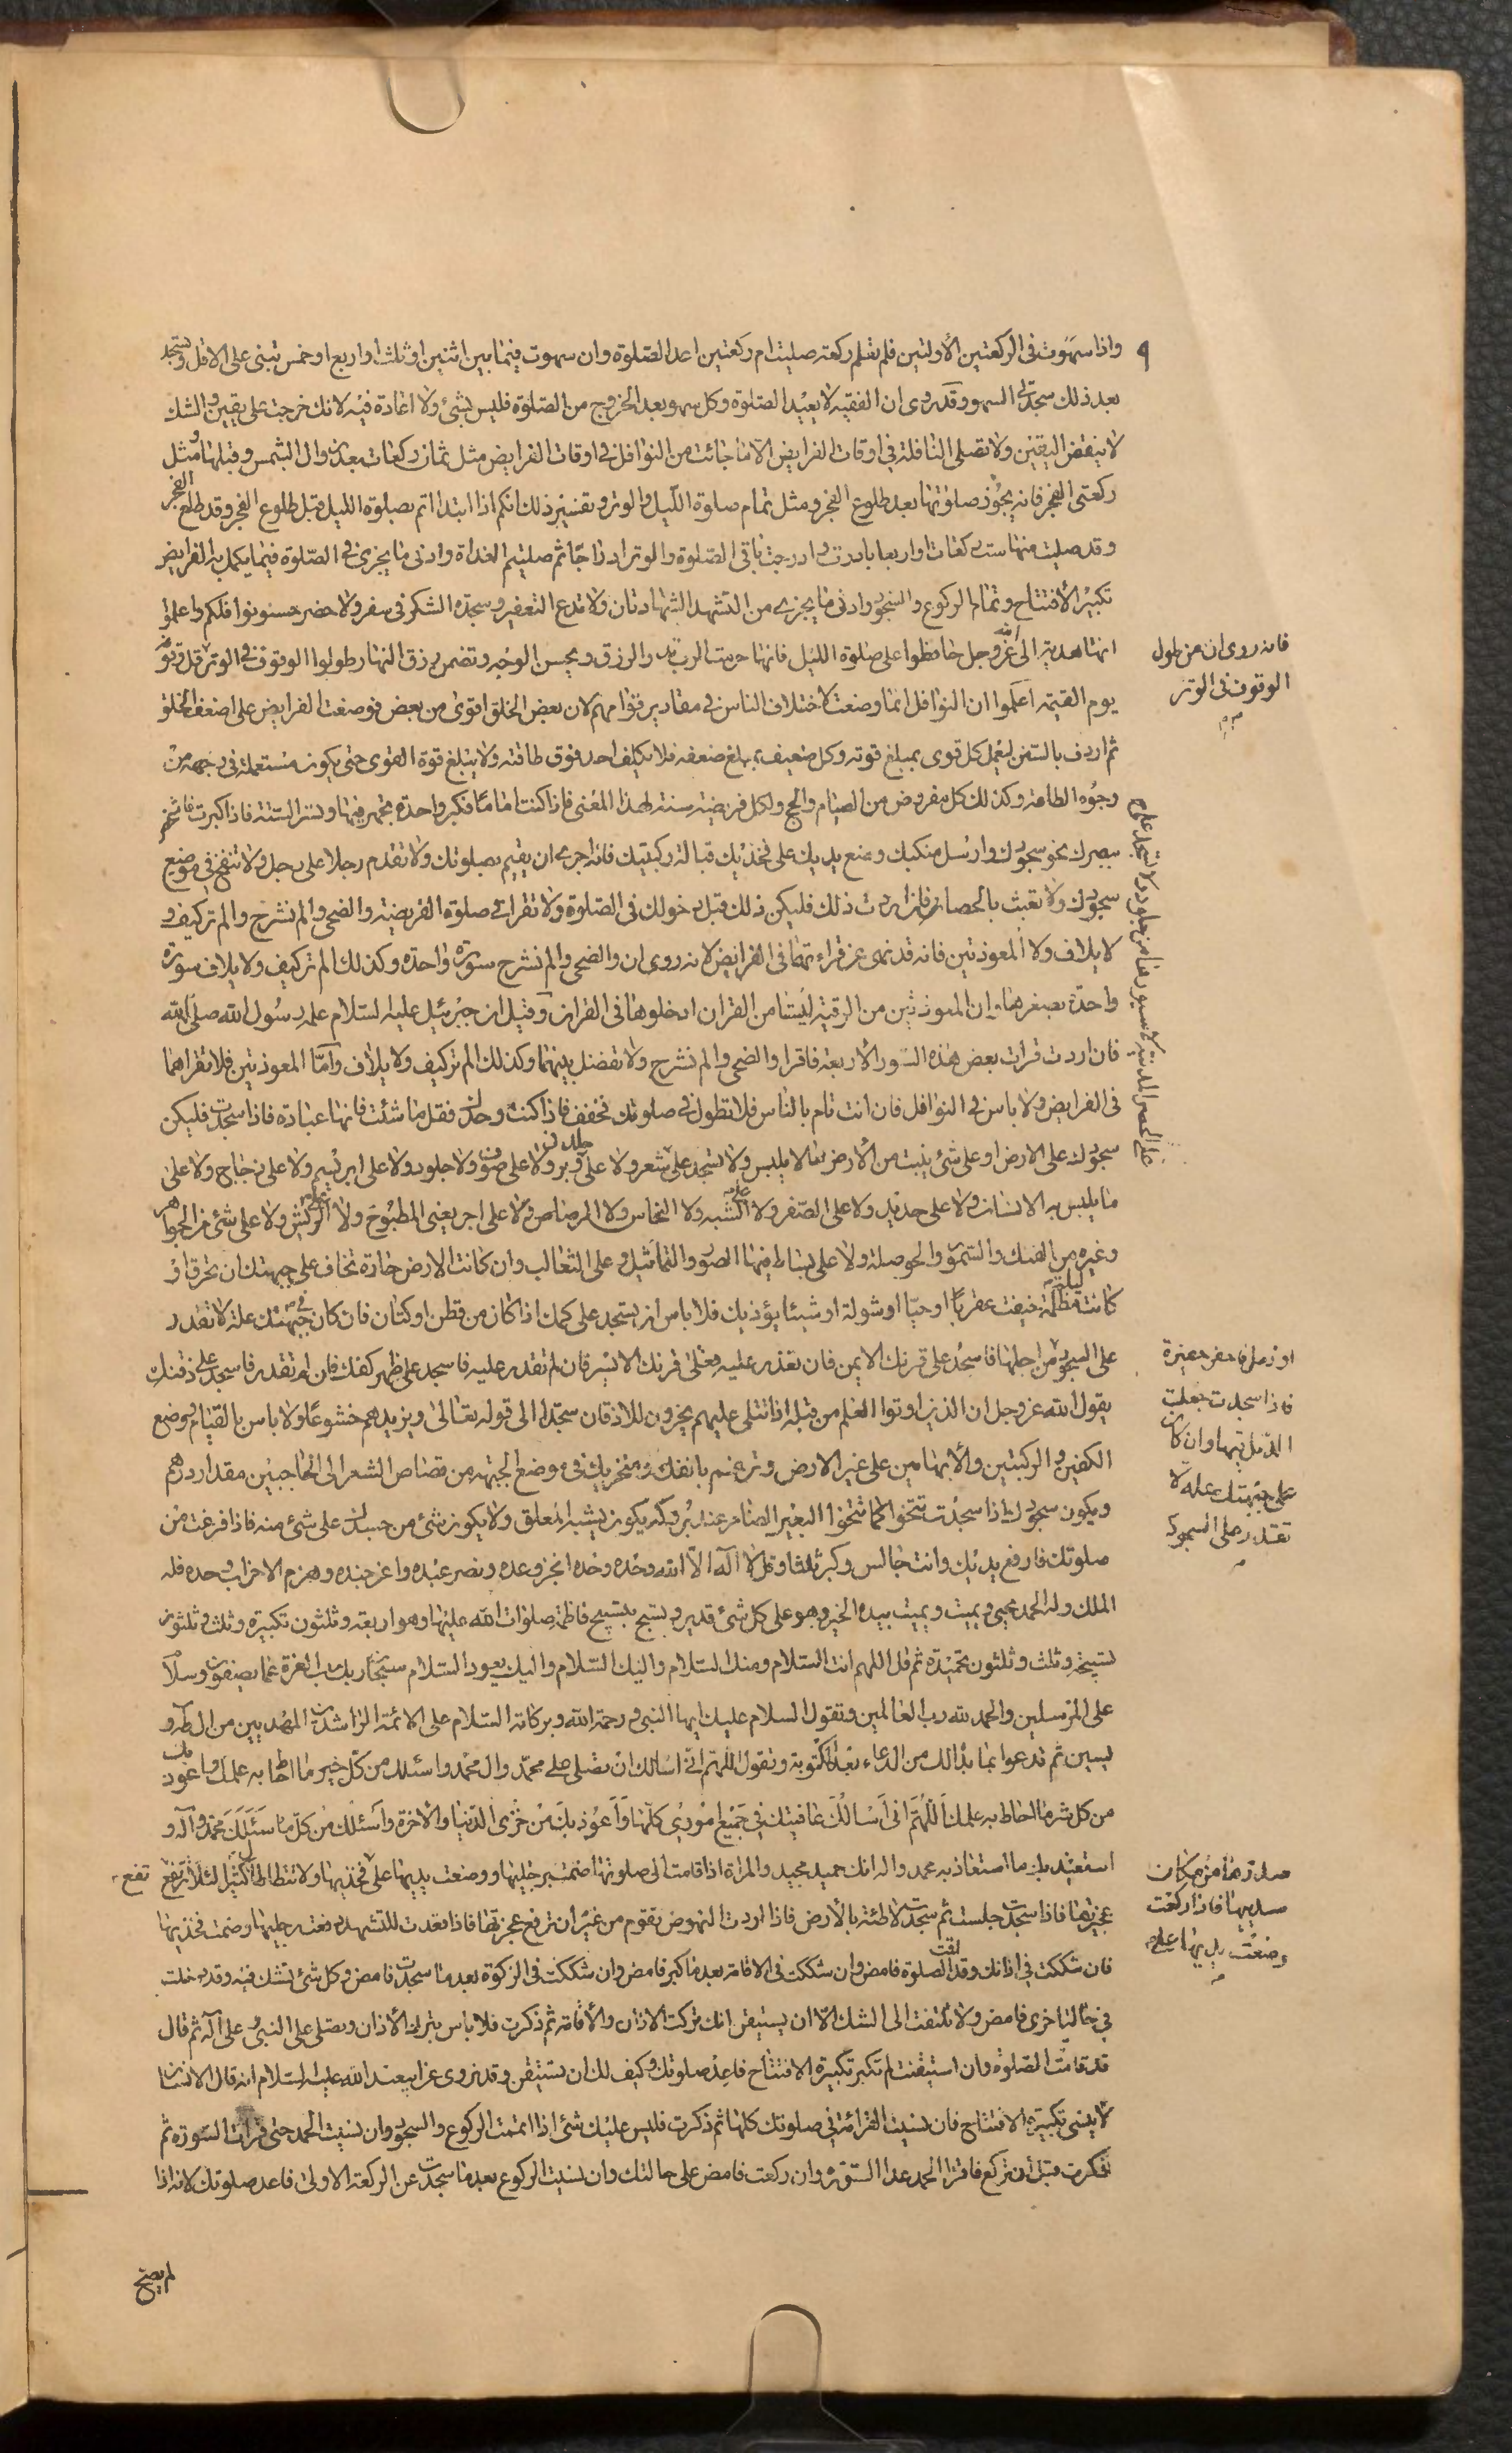 واذا سهوت فى الركعتين الأولتين فلم تعلم ركعة صليت ام ركعتين اعد الصلوة وان سهوت فيما بين اثنين او ثلث او اربع او خمس تبنى على الاقل وتسجد
بعد ذلك سجدتى السهو وقد روى ان الفقيه لا يعيد الصلوة وكل سهو بعد الخروج من الصلوة فليس بشئ ولا اعادة فيه لانك خرجت على يقين والشك
لا ينقض اليقين ولا تصلى النافلة فى اوقات الفرايض الا ما جائت من النوافل فى اوقات الفرايض مثل ثمان ركعات بعد زوال الشمس وقبلها ومثل
ركعتى الفجر فانه يجوز صلوتها بعد طلوع الفجر ومثل تمام صلوة الليل والوتر وتفسير ذلك انكم اذا ابتداتم بصلوة الليل قبل طلوع الفجر وقد طلع الفجر
وقد صليت منها ست ركعات او اربعا بادرت وادرجت باقى الصلوة والوتر ادراجا ثم صليتم الغداة وادنى ما يجزى فى الصلوة فيما يكمل به الفرايض
تكبير الافتتاح وتمام الركوع والسجود وادنى ما يجزى من التشهد الشهادتان ولا تدع التعفير وسجدة الشكر فى سفر ولا حضر حسنوا نوافلكم واعلموا
انها هدية الى الله عز وجل حافظوا على صلوة الليل فانها حرمة الرب تدر الرزق ويحسن الوجه وتضمن رزق النهار طولوا الوقوف فى الوتر
فانه روى ان من طول
الوقوف فى الوتر
يوم القيمة اعلموا ان النوافل انما وضعت لاختلاف الناس فى مقادير قوامهم لان بعض الخلق اقوى من بعض فوضعت الفرايض على اضعف الخلق
ثم اردف بالسنن ليعمل كل قوى بمبلغ قوته وكل ضعيف بمبلغ ضعفه فلا يكلف احد فوق طاقته ولا يبلغ قوة القوى حتى يكون مستعملة فى وجه من
وجوه الطاعة وكذلك كل مفروض من الصيام والحج ولكل فريضة سنة لهذا المعنى فاذا كنت اماما فكبر واحدة تجهر فيها وتسر الستة فاذا كبرت فاشخص
ببصرك نحو سجودك وارسل منكبك وضع يديك على فخذيك قبالة ركبتيك فانه احرى ان يقيم بصلوتك ولا تقدم رجلا على رجل ولا تنفخ فى موضع
سجودك ولا تعبث بالحصا فان اردت ذلك فليكن ذلك قبل دخولك فى الصلوة ولا تقرا فى صلوة الفريضة والضحى والم نشرح والم تر كيف و
لا يلاف ولا المعوذتين فانه قد نهى عن قراءتهما فى الفرايض لانه روى ان والضحى والم نشرح سورة واحدة وكذلك الم تر كيف ولا يلاف سورة
واحدة بصغرها وان المعوذتين من الرقية ليستا من القران ادخلوها فى القران وقيل ان جبرئيل عليه السلام علمه رسول الله صلى الله
فان اردت قرات بعض هذه السور الأربعة فاقرا والضحى والم نشرح ولا تفصل بينهما وكذلك الم تر كيف ولا يلاف واما المعوذتين فلا تقراهما
فى الفرايض ولا باس فى النوافل فان انت تام بالناس فلا تطول فى صلوتك وخفف فاذا كنت وحدك فثقل ما شئت فانها عبادة فاذا سجدت فليكن
سجودك على الارض او على شئ ينبت من الأرض مما لا يلبس ولا تسجد على شعر ولا على وبر ولا على صوف ولا جلود ولا على ابريسم ولا على زجاج ولا على
ما يلبس به الانسان ولا على حديد ولا على الصفر ولا الشبه ولا النحاس ولا الرصاص ولا على اجر يعنى المطبوخ ولا الريش ولا على شئ من الجواهر
وغيره من الفنك والسمور والحوصلة ولا على بساط فيها الصور والتماثيل وعلى الثعالب وان كانت الارض حارة تخاف على جبهتك ان تحرق او
كانت ليلة مظلمة خفت عقربا او حيا او شوكة او شيئا يؤذيك فلا باس ان تسجد على كمك اذا كان من قطن او كتان فان كان فى جبهتك علة لا تقدر
على السجود من اجلها فاسجد على قرنك الايمن فان تعذر عليه فعلى قرنك الايسر فان لم تقدر عليه فاسجد على ظهر كفك فان لم تقدر فاسجد على ذقنك
فاذا سجدت جعلت
الدمل فيها وان كان
على جبهتك علة لا
تقدر على السجود
يقول الله عز وجل ان الذين اوتوا العلم من قبله اذا تتلى عليهم يخرون للاذقان سجدا الى قوله تعالى ويزيدهم خشوعا ولا باس بالقيام ووضع
الكفين والركبتين والأبهامين على غير الارض وترغم بانفك ومنخريك فى موضع الجبهة من قصاص الشعر الى الحاجبين مقدار درهم
ويكون سجودك اذا سجدت تتخوا كما يتخوا البعير الضامر عند بروكه يكون شبه المعلق ولا يكون شئ من جسدك على شئ منه فاذا فرغت من
صلوتك فارفع يديك وانت جالس وكبر ثلثا وقل لا اله الا الله وحده وحده انجز وعده ونصر عبده واعز جنده وهزم الاحزاب وحده فله
الملك وله الحمد يحيى ويميت ويميت بيده الخير وهو على كل شئ قدير وتسبح بتسبيح فاطمة صلوات الله عليها وهو اربعة وثلثون تكبيرة وثلث وثلثون
تسبيحة وثلث وثلثون تحميدة ثم قل اللهم انت السلام ومنك السلام واليك السلام واليك يعود السلام سبحان ربك رب العزة عما يصفون وسلام
على المرسلين والحمد لله رب العالمين وتقول السلام عليك ايها النبى ورحمة الله وبركاته السلام على الائمة الراشدين المهديين من ال طه و
يسين ثم تدعوا بما بدالك من الدعاء بعد المكتوبة وتقول اللهم انى اسالك ان تصلى على محمد وال محمد واسئلك من كل خير ما احاط به علمك واعوذ بك
من كل شر ما احاط به علمك اللهم انى اسالك عافيتك فى جميع امورى كلها واعوذ بك من خزى الدنيا والاخرة واسئلك من كل ما سئلك محمد وآله و
استعيذ بك ما استعاذ به محمد واله انك حميد مجيد والمراة اذا قامت الى صلوتها ضمت رجليها ووضعت يديها على فخذيها ولا تتطاطا كثيرا لئلا ترتفع
عجيزتها فاذا سجدت جلست ثم سجدت لاطئة بالأرض فاذا اردت النهوض تقوم من غير ان ترفع عجيزتها فاذا قعدت للتشهد رفعت رجليها وضمت فخذيها
فان شككت فى اذانك وقد اقت الصلوة فامض وان شككت فى الاقامة بعد ما كبر فامض وان شككت فى الركوة بعد ما سجدت فامض وكل شئ تشك فيه وقد دخلت
فى حالة اخرى فامض ولا تلتفت الى الشك الا ان يستيقن انك تركت الاذان والأقامة ثم ذكرت فلا باس بترك الأذان وتصلى على النبى وعلى آله ثم قال
قد قامت الصلوة وان استيقنت لم تكبر تكبيرة الافتتاح فاعد صلوتك وكيف لك ان تستيقن وقد نروى عن ابيعبد الله عليه السلام انه قال الانسان
لا ينسى تكبيرة الافتتاح فان نسيت القرائة فى صلوتك كلها ثم ذكرت فليس عليك شئ اذا اتممت الركوع والسجود وان نسيت الحمد حتى قرات السورة ثم
ذكرت قبل ان تركع فاقرا الحمد واعد السورة وان ركعت فامض على حالتك وان نسيت الركوع بعد ما سجدت عن الركعة الاولى فاعد صلوتك لانه اذا
لم يصح